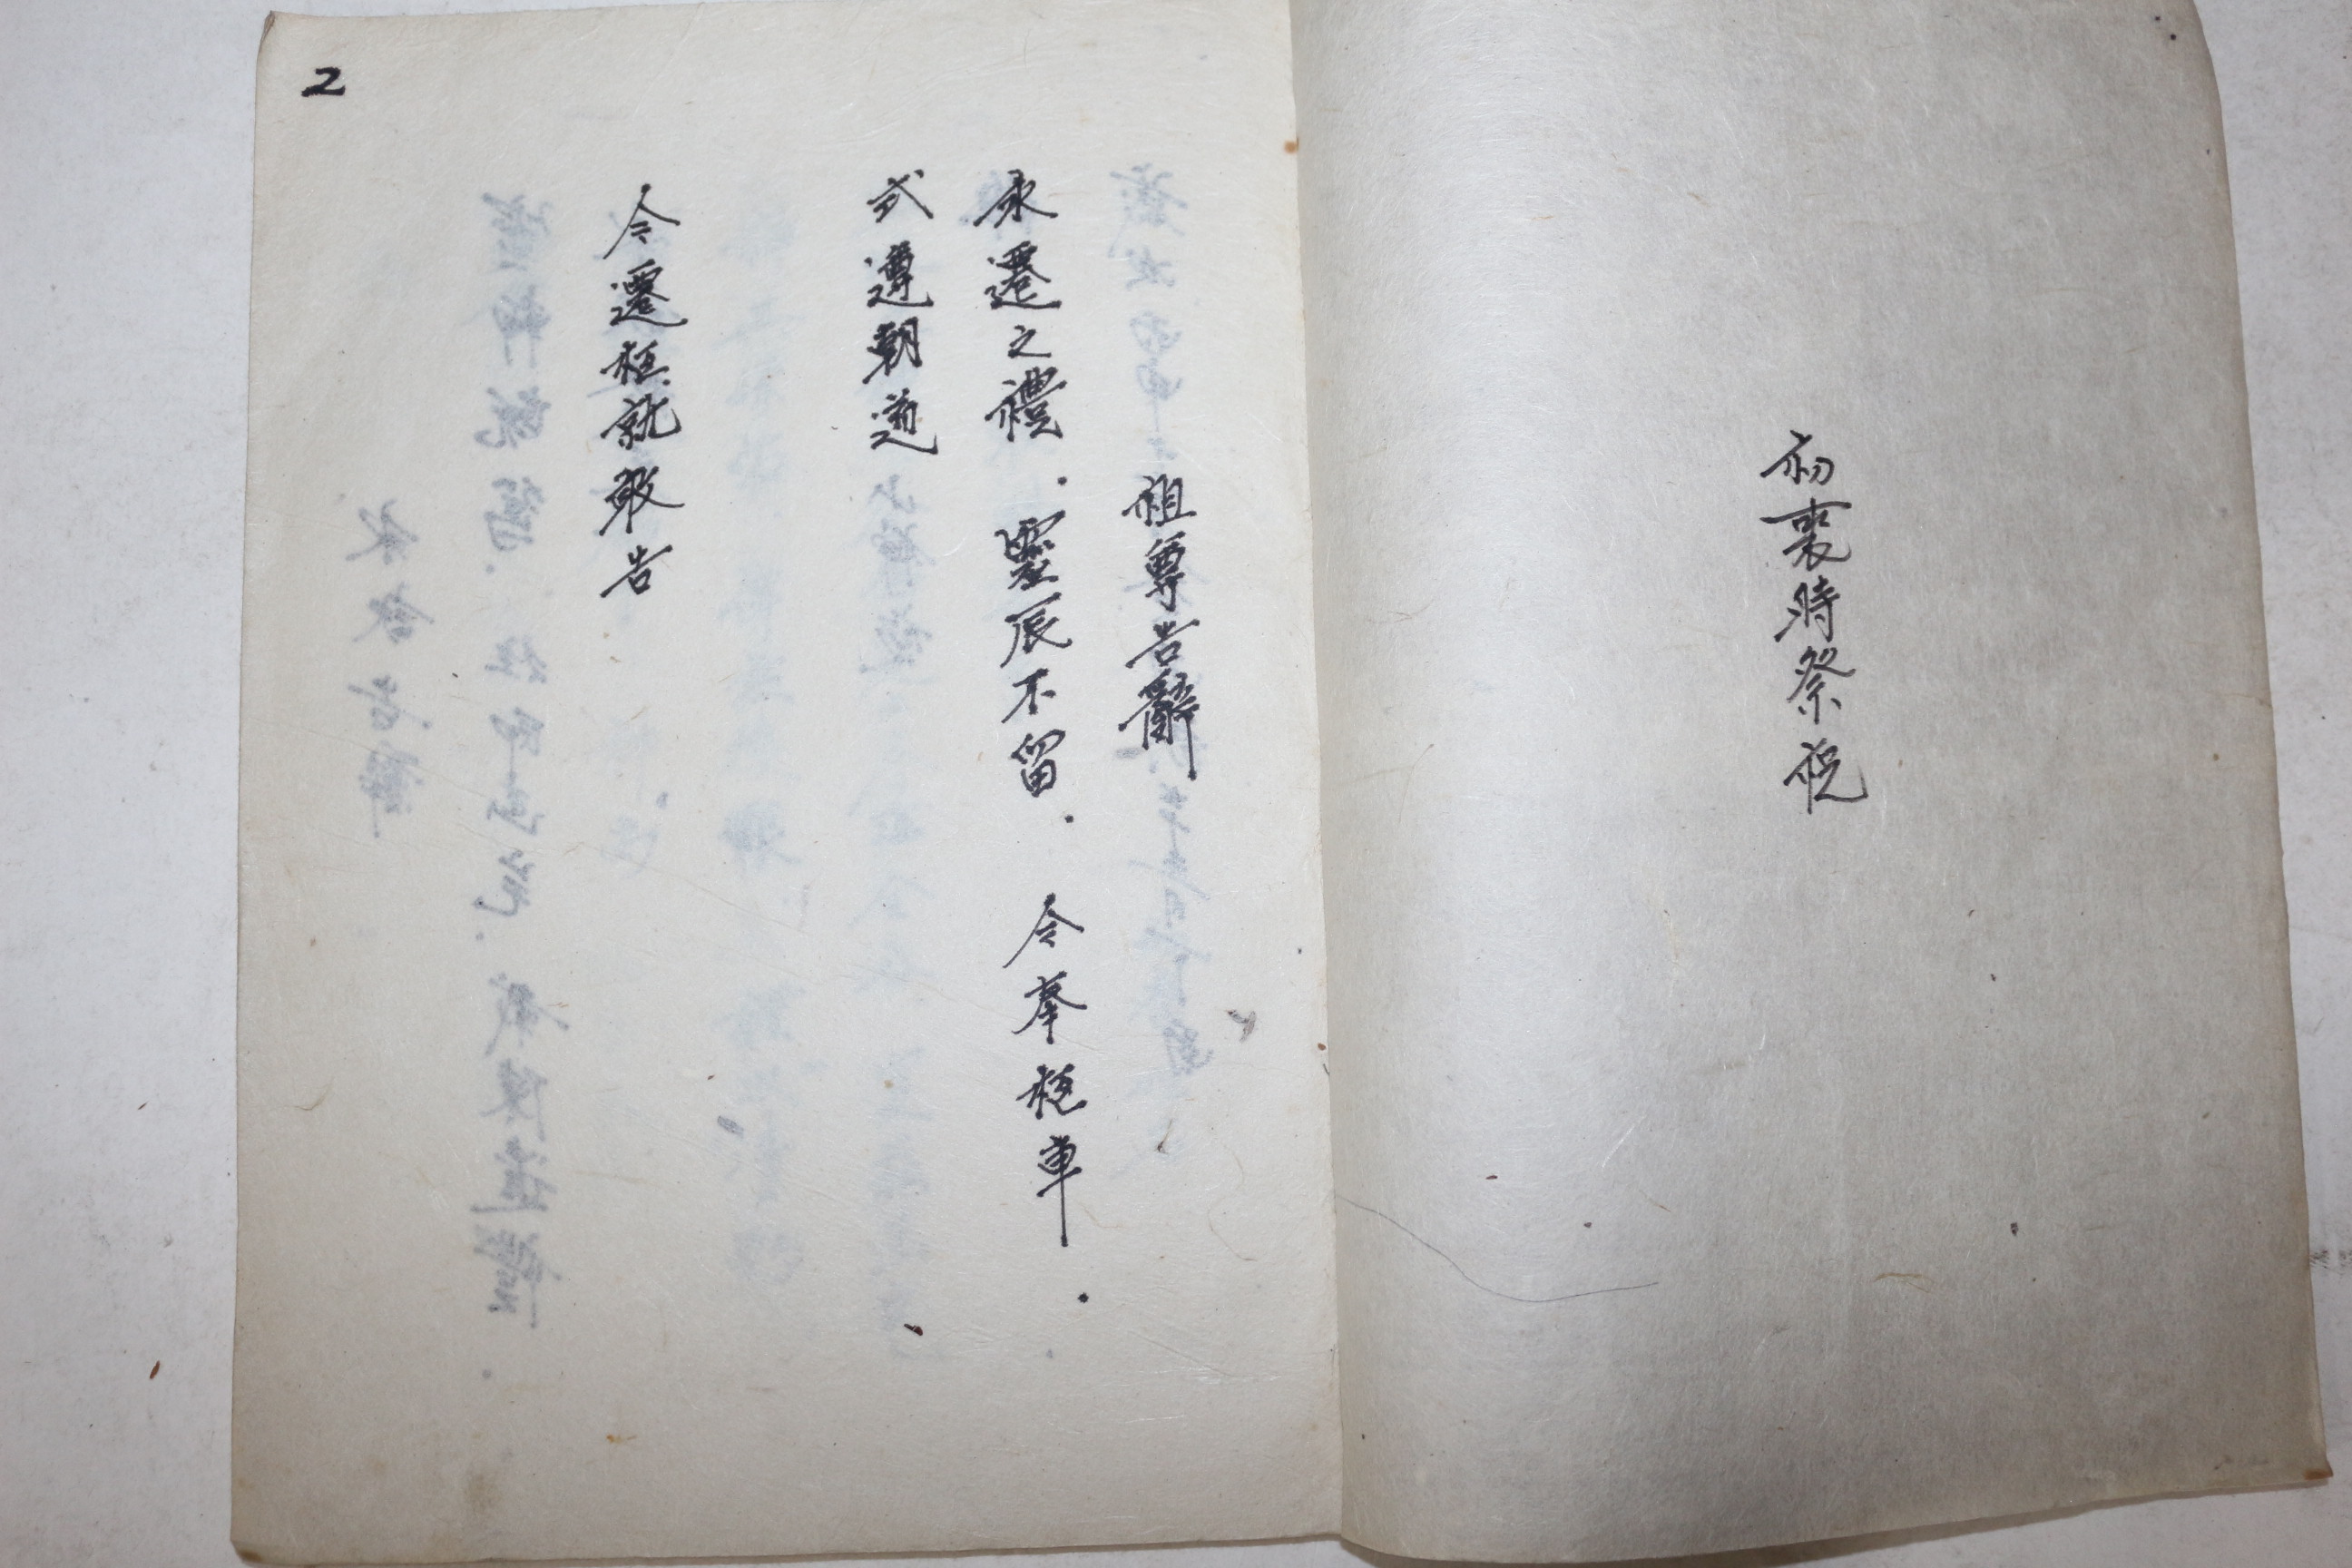 初喪時祭祝
祖尊告辭
永遷之禮．靈辰不留．今奉柩車．
式遵朝道
今遷柩就敢告
2